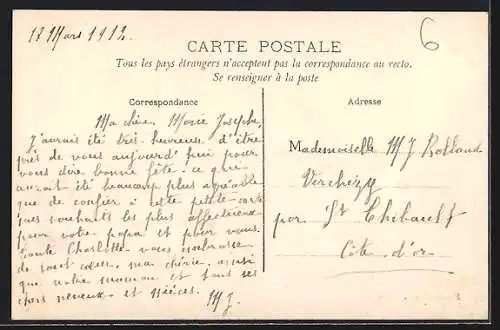 18 Mars 1912.
6
CARTE POSTALE
Tous les pays étrangers n'acceptent pas la correspondance au recto.
Se renseigner à la poste
Correspondance
Ma chère Marie Josèphe,
J'aurais été très heureuse d'être
près de vous aujourd'hui pour
vous dire bonne fête. ce qui
aurait été beaucoup plus agréable
que de confier à cette petite carte
mes souhaits les plus affectueux
pour votre papa et pour vous.
tante Charlotte vous embrasse
de tout cœur, ma chérie, ainsi
que votre maman et tous ses
chers neveux et nièces.
MJ.
Adresse
Mademoiselle M J Rolland
Verchizy
par St Thibault
Côte d'or